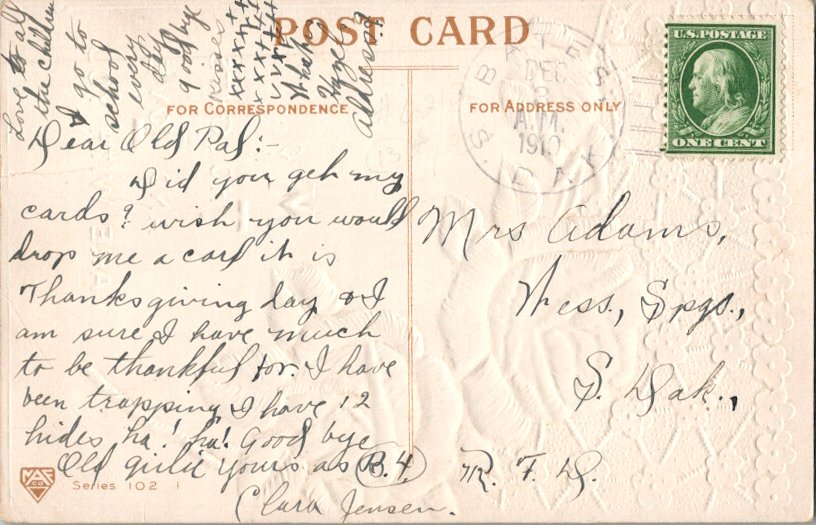 POST CARD
FOR CORRESPONDENCE
FOR ADDRESS ONLY
U.S. POSTAGE
ONE CENT
DEC
A.M.
1910
S. DAK.
Love to all
the children
I go to
school
every
day
goodbye
kisses
xxxxxx
xxxxxx
address?
Dear Old Pal:-
Did you geh my
cards? wish you would
drop me a card ih is
Thanksgiving day & I
am sure I have much
to be thankful for. I have
been trapping & I have 12
hides ha! ha! Good bye
Old girlie yours as B.4
Clara Jensen.
Mrs Adams,
Wess, Spgs.,
S. Dak.,
R. F. D.
Series 102 1